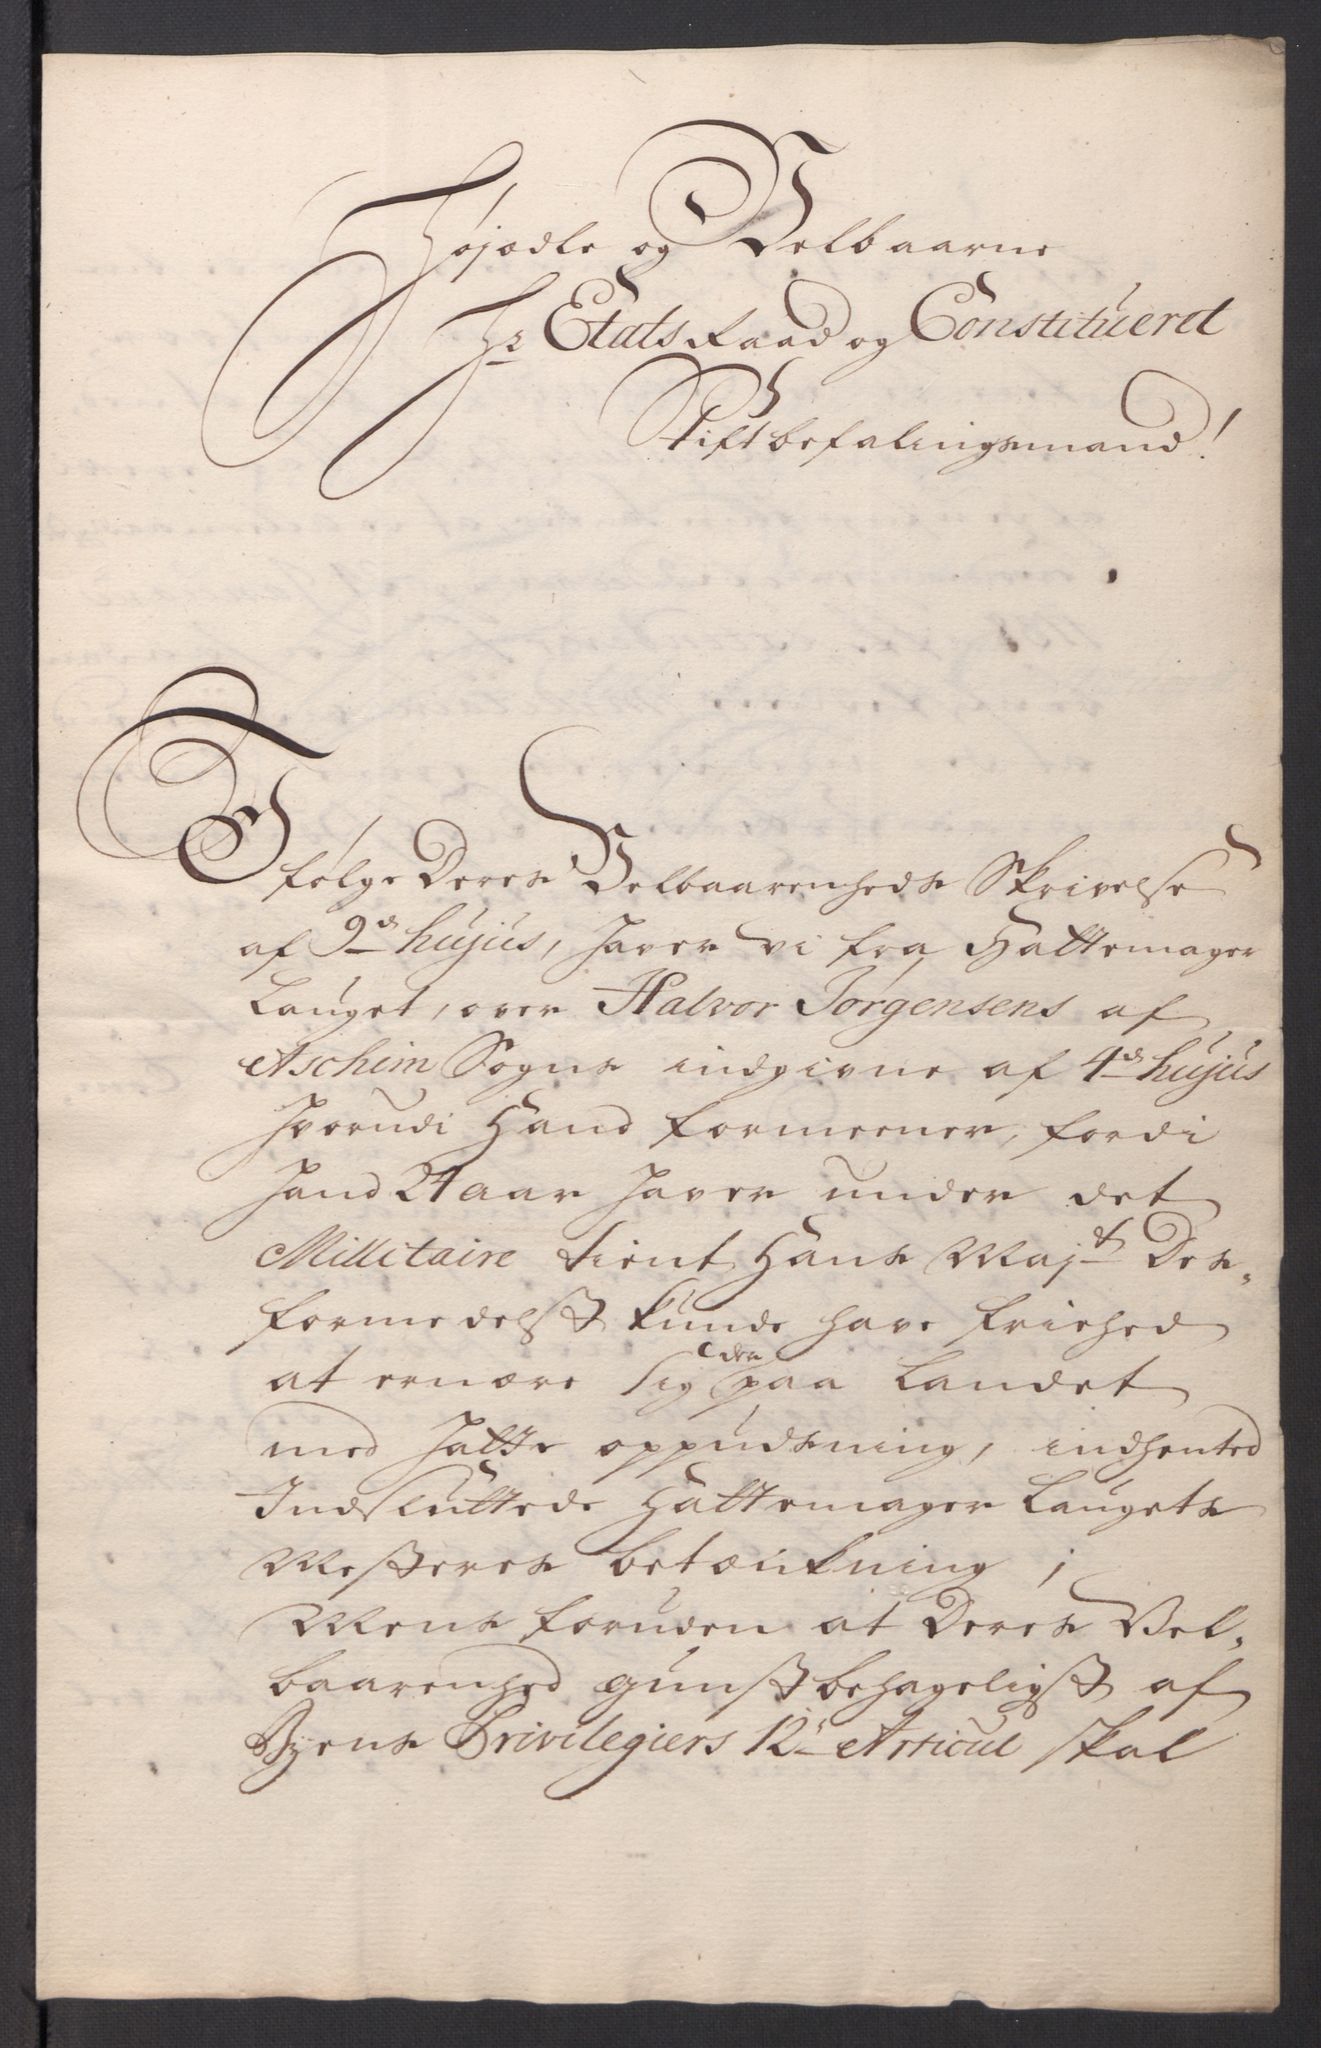 Højædle og Velbaarne
Hr Etats Raad og Constitueret
Stiftbefalingsmand!
I følge Deres Velbaarenheds Skrivelse
af 9d hujus, haver vi fra Hattemager
Lauget, over Halvor Jörgensens af
Aschim Sogns indgivne af 4d hujus
hvorudi Hand formeener, fordi
hand 24 aar haver under det
Millitaire tient Hans Majt Des-
formedelst kunde have friehed
at ernære sig der paa Landet
med hatte oppudsning, indhented
Indsluttede Hattemager Laugets
Mesteres betænkning;
Mens foruden at Deres Vel-
baarenhed gunstbehageligst af
Byens Privilegiers 12te Articul skal